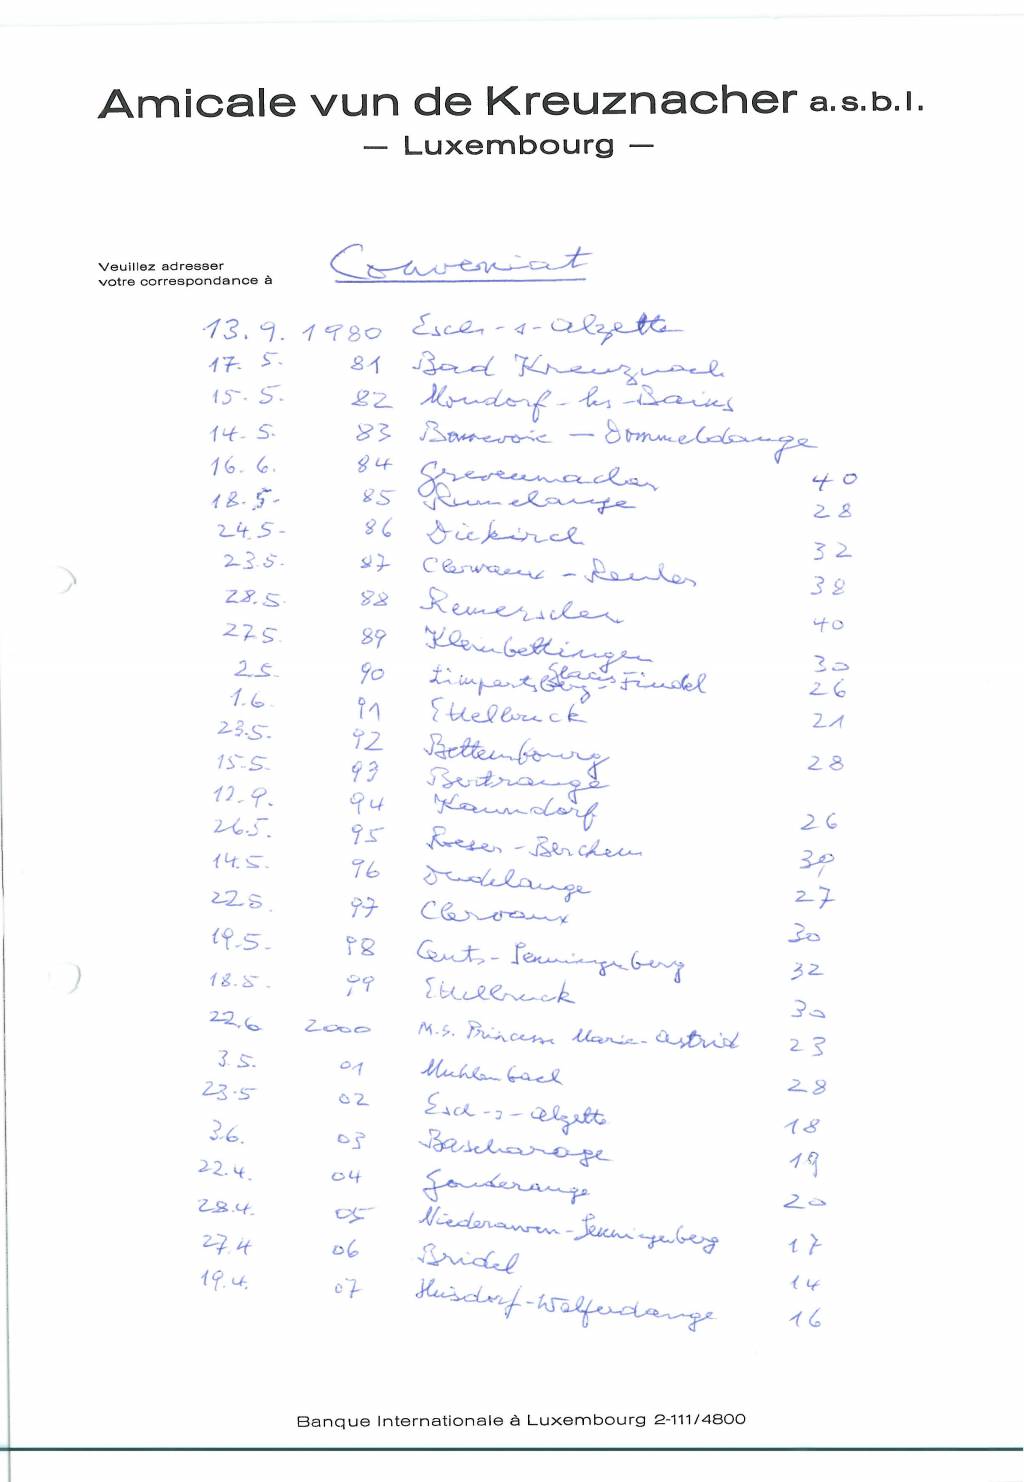 Amicale vun de Kreuznacher a.s.b.l.
— Luxembourg —
Veuillez adresser
votre correspondance à
Conveniat
13.9. 1980 Esch-s-Alzette
17. 5. 81 Bad Kreuznach
15. 5. 82 Mondorf-les-Bains
14. 5. 83 Bonnevoie — Dommeldange
16. 6. 84 Grevenmacher 40
18. 5. 85 Rumelange 28
24.5. 86 Diekirch 32
23.5. 87 Clervaux - Reuler 38
28.5. 88 Remerschen 40
27.5. 89 Kleinbettingen 30
2.5. 90 Limpertsberg Glacis-Findel 26
1.6. 91 Ettelbruck 21
23.5. 92 Bettembourg 28
15.5. 93 Bertrange
12.9. 94 Kaundorf 26
26.5. 95 Roeser-Berchem 30
14.5. 96 Dudelange 27
22.5. 97 Clervaux 30
19.5. 98 Cents-Senningerberg 32
18.5. 99 Ettelbruck 30
22.6 2000 M.S. Princesse Marie-Astrid 23
3.5. 01 Muhlenbach 28
23.5 02 Esch-s-Alzette 18
3.6. 03 Bascharage 19
22.4. 04 Gonderange 20
28.4. 05 Niederanven-Senningerberg 17
27.4 06 Bridel 14
19.4. 07 Heisdorf-Walferdange 16
Banque Internationale à Luxembourg 2-111/4800